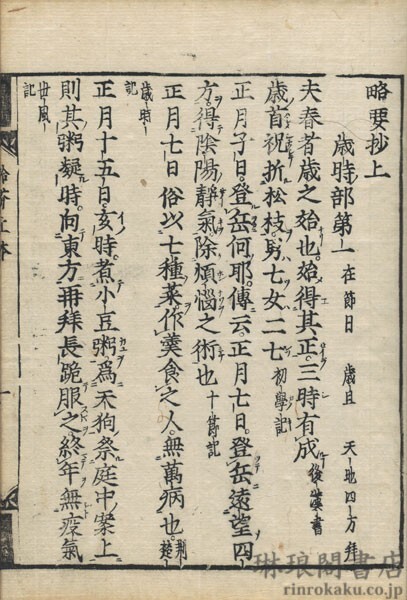 略要抄上
歳時部第一 在節日 歳旦 天地四方拜
夫春者歳之始也始得其正三時有成 後漢書
歳首祝折松枝男七女二七 初學記
正月子日登岳何耶傳云正月七日登岳遠望四
方得陰陽静氣除煩惱之術也 十節記
正月七日俗以七種菜作羹食之人無萬病也 荊楚
歳時記
正月十五日亥時煮小豆粥爲天狗祭庭中案上
則其粥凝時向東方再拜長跪服之終年無疫氣
世風記
琳琅閣書店
rinrokaku.co.jp